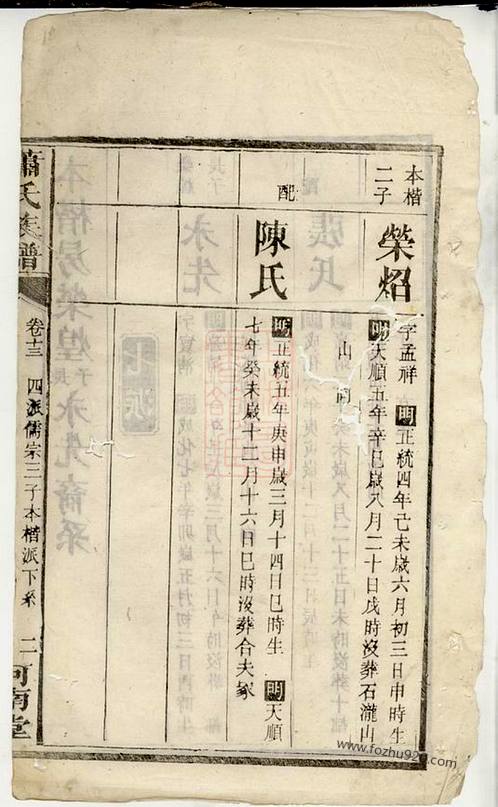 本楷
二子
榮炤
字孟祥 明正統四年己未歲六月初三日申時生
明天順五年辛巳歲八月二十日戌時沒葬石瀧山
山向
配
陳氏
明正統五年庚申歲三月十四日巳時生 明天順
七年癸未歲十二月十六日巳時沒葬合夫冢
蕭氏族譜
卷十三 四派儒宗三子本楷派下系 二
河南堂
www.fozhu920.com